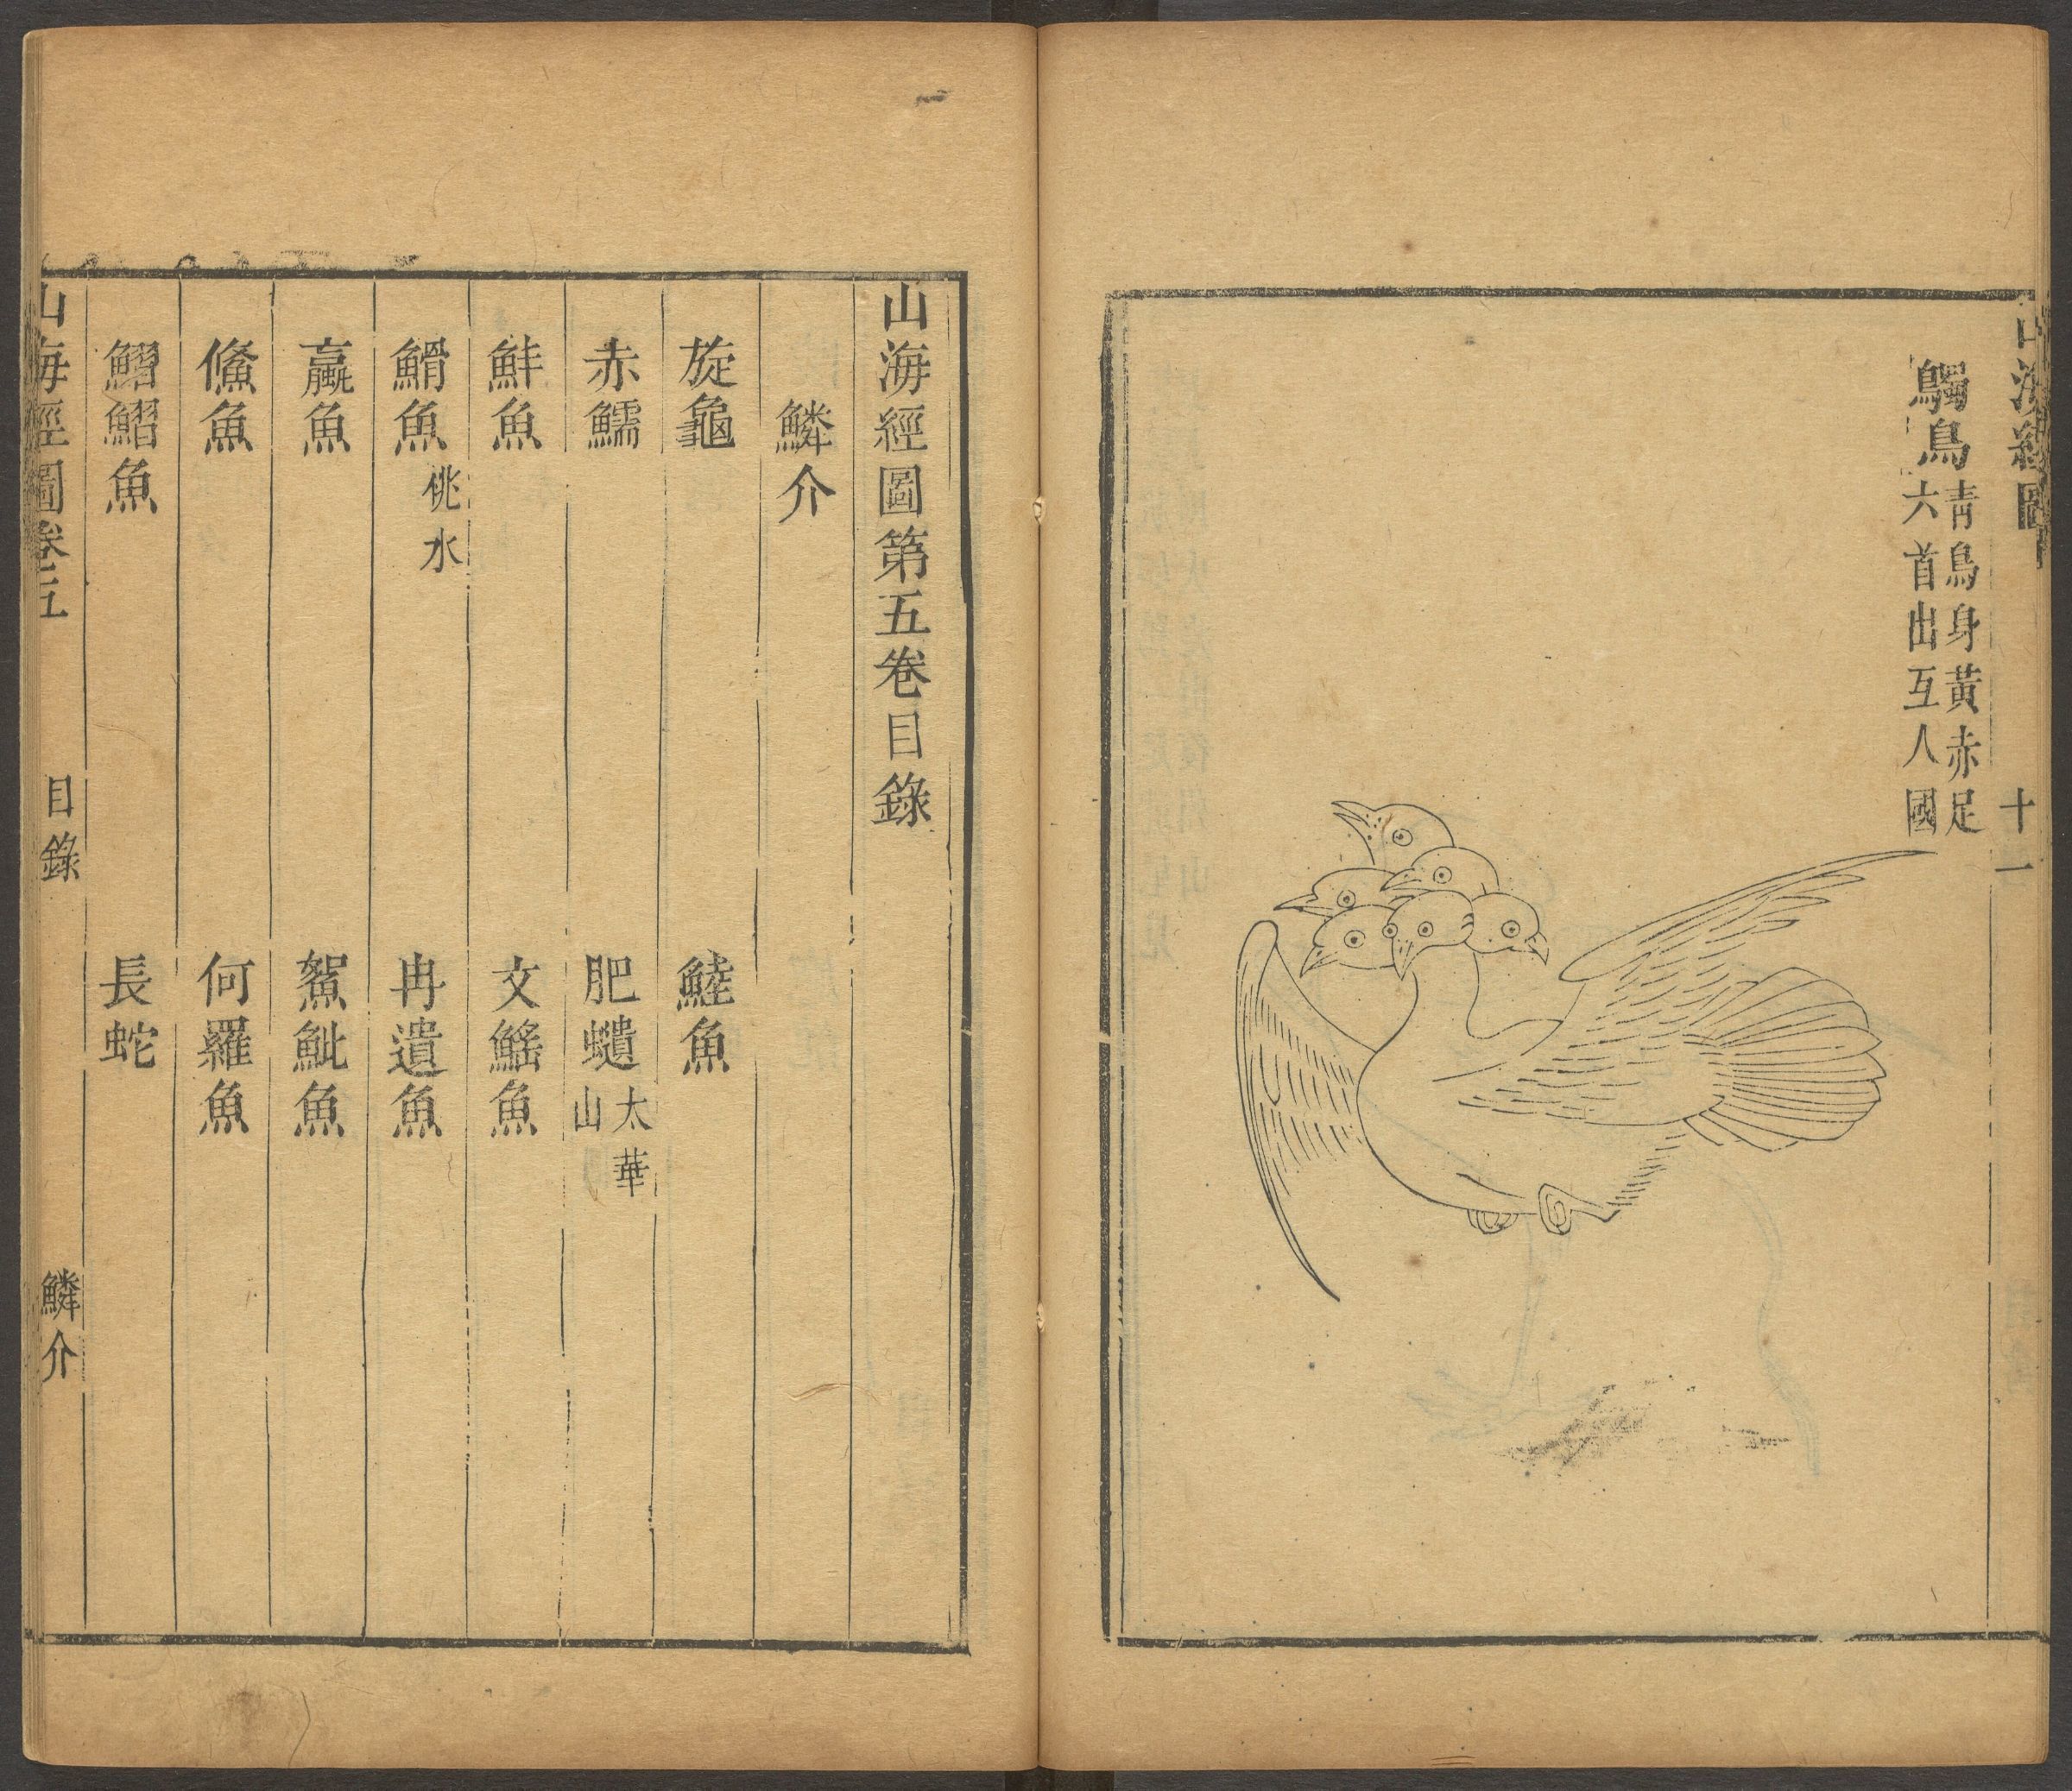 山海經圖
十一
鸀鳥
青鳥身黃赤足
六首出互人國
山海經圖第五卷目錄
鱗介
旋龜
鯥魚
赤鱬
肥𧔥
太華
山
鮮魚
文鰩魚
鰼魚
桃水
冉遺魚
蠃魚
鴽魮魚
鯈魚
何羅魚
鰼鰼魚
長蛇
山海經圖卷五
目錄
鱗介